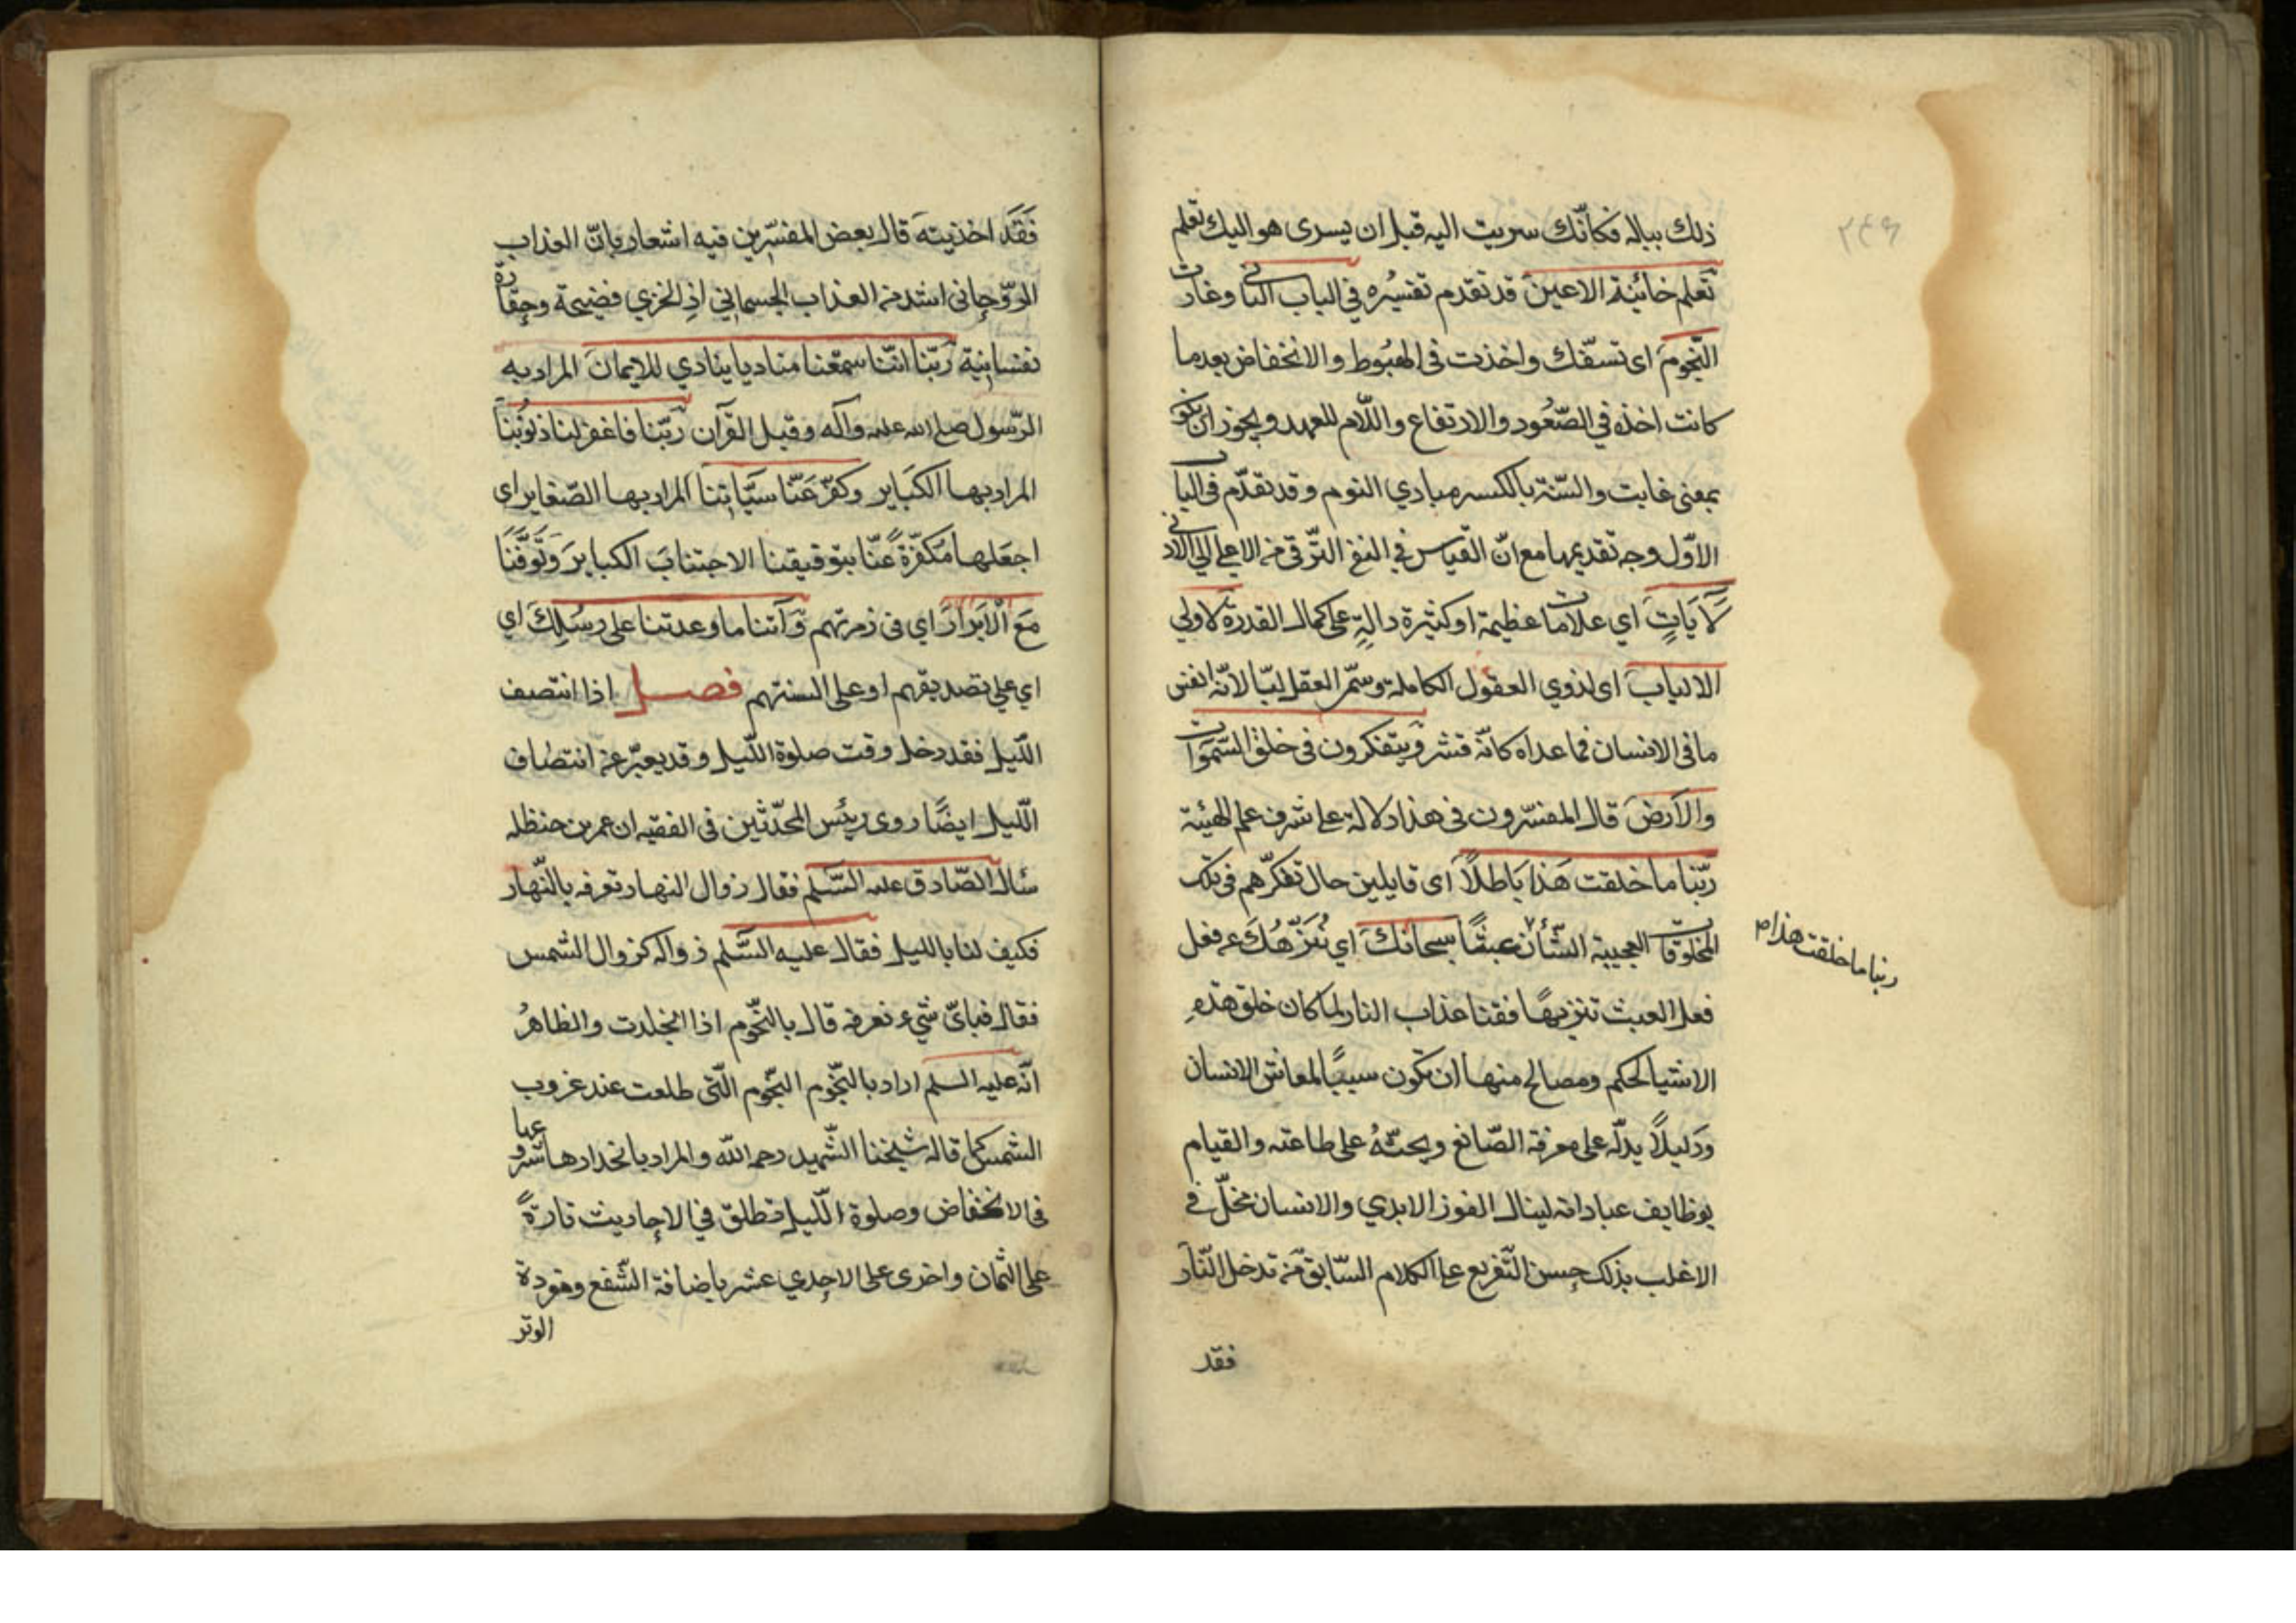 ٢٤٩
ذلك بباله فكانّك سريت اليه قبل ان يسرى هو اليك تعلم
تعلم خائنة الاعين قد تقدم تفسيره في الباب الثانى وغارت
النّجوم اى تسفّلت واخذت فى الهبوط والانخفاض بعد ما
كانت اخذه في الصّعود والارتفاع واللّام للعهد ويجوز ان يكو
بمعنى غابت والسّنة بالكسر مبادي النوم وقد تقدّم فى الباب
الاوّل وجه تقديمها مع انّ القياس في النفى التّرقى من الاعلى الي الادنى
لَآيَاتٍ اي علامات عظيمة او كثيرة دالةٍ على كمال القدرة لاولي
الالباب اى لذوي العقول الكاملة وسمّى العقل لبّا لانّه انفس
ما فى الانسان فما عداه كانّه قشر ويتفكرون فى خلق السّموات
والارض قال المفسّرون فى هذا دلالة على شرف علم الهيئة
ربّنا ما خلقت هَذا بَاطلًا اى قايلين حال تفكّرهم فى تلك
المخلوقات العجيبة الشّأن عبثًا سبحانك اي نُنَزّهُكَ عن فعل
ربنا ما خلقت هذا م
فعل العبث تنزيهًا فقنا عذاب النار لما كان خلق هذهِ
الاشيا لحكم ومصالح منها ان تكون سببًا لمعاش الانسان
ودَليلًا يدلّه على معرفة الصّانع ويحثّهُ على طاعته والقيام
بوظايف عباداته لينال الفوز الابدي والانسان مخلّ في
الاغلب بذلك حسن التّفريع على الكلام السّابق مَن تدخل النّار
فقد
فَقَد اخذيته قال بعض المفسّرين فيه اشعار بانّ العذاب
الروّحانى اشد من العذاب الجسماني اذِ الخزي فضيحة وحقارة
نفسانيّة رَبّنا انّنا سمعنا مناديا ينادي للايمان المراد به
الرّسول صلى الله عليه وآله وقيل القرآن ربّنا فاغفر لنا ذنوبنا
المراد بها الكبَاير وكفّر عَنّا سَيّاتنا المراد بها الصّغاير اى
اجعَلها مُكَفّرةً عنّا بتوفيقنا الاجتنابَ الكبايرَ وَتَوَفَّنَا
مَعَ الْاَبَرارَ اي فى زمرتهم وَآتنا ما وعدتنا على رسُلِكَ اي
اي على تصديقهم او على السنتهم فصل اذا انتصف
اللّيل فقد دخل وقت صلوة اللّيل وقد يعبّر عن انتصاف
اللّيل ايضًا روى ريئس المحدّثين فى الفقيه ان عمر بن حنظله
سَال الصّادق عليه السَّلم فقال زوال النهار نعرفه بالنّهار
فكيف لنا بالليل فقال عليه السَّلم زواله كزوال الشمس
فقال فباىّ شيء نعرفه قال بالنّجوم اذا انحدرت والظاهرُ
انّه عليه السلم اراد بالنّجوم النّجوم الّتى طلعت عند غروب
الشمس كما قاله شيخنا الشّهيد رحمه اللّه والمراد بانحدارها شروعها
فى الانخفاض وصلوة اللّيل تطلق في الاحاديث تارةً
على الثمان واخرى على الاحدي عشر باضافة الشّفع ومفردة
الوتر